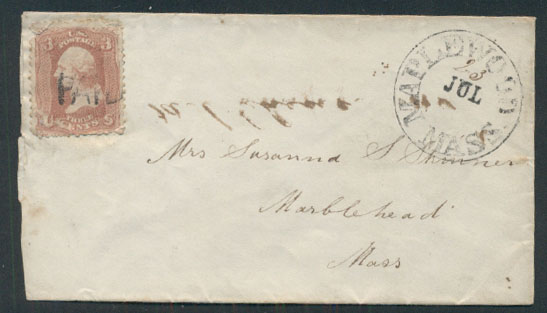 3 U.S. 3
POSTAGE
PAID
THREE
CENTS
MAPLEWOOD
23
JUL
MASS
Mrs Susanna S Skinner
Marblehead
Mass